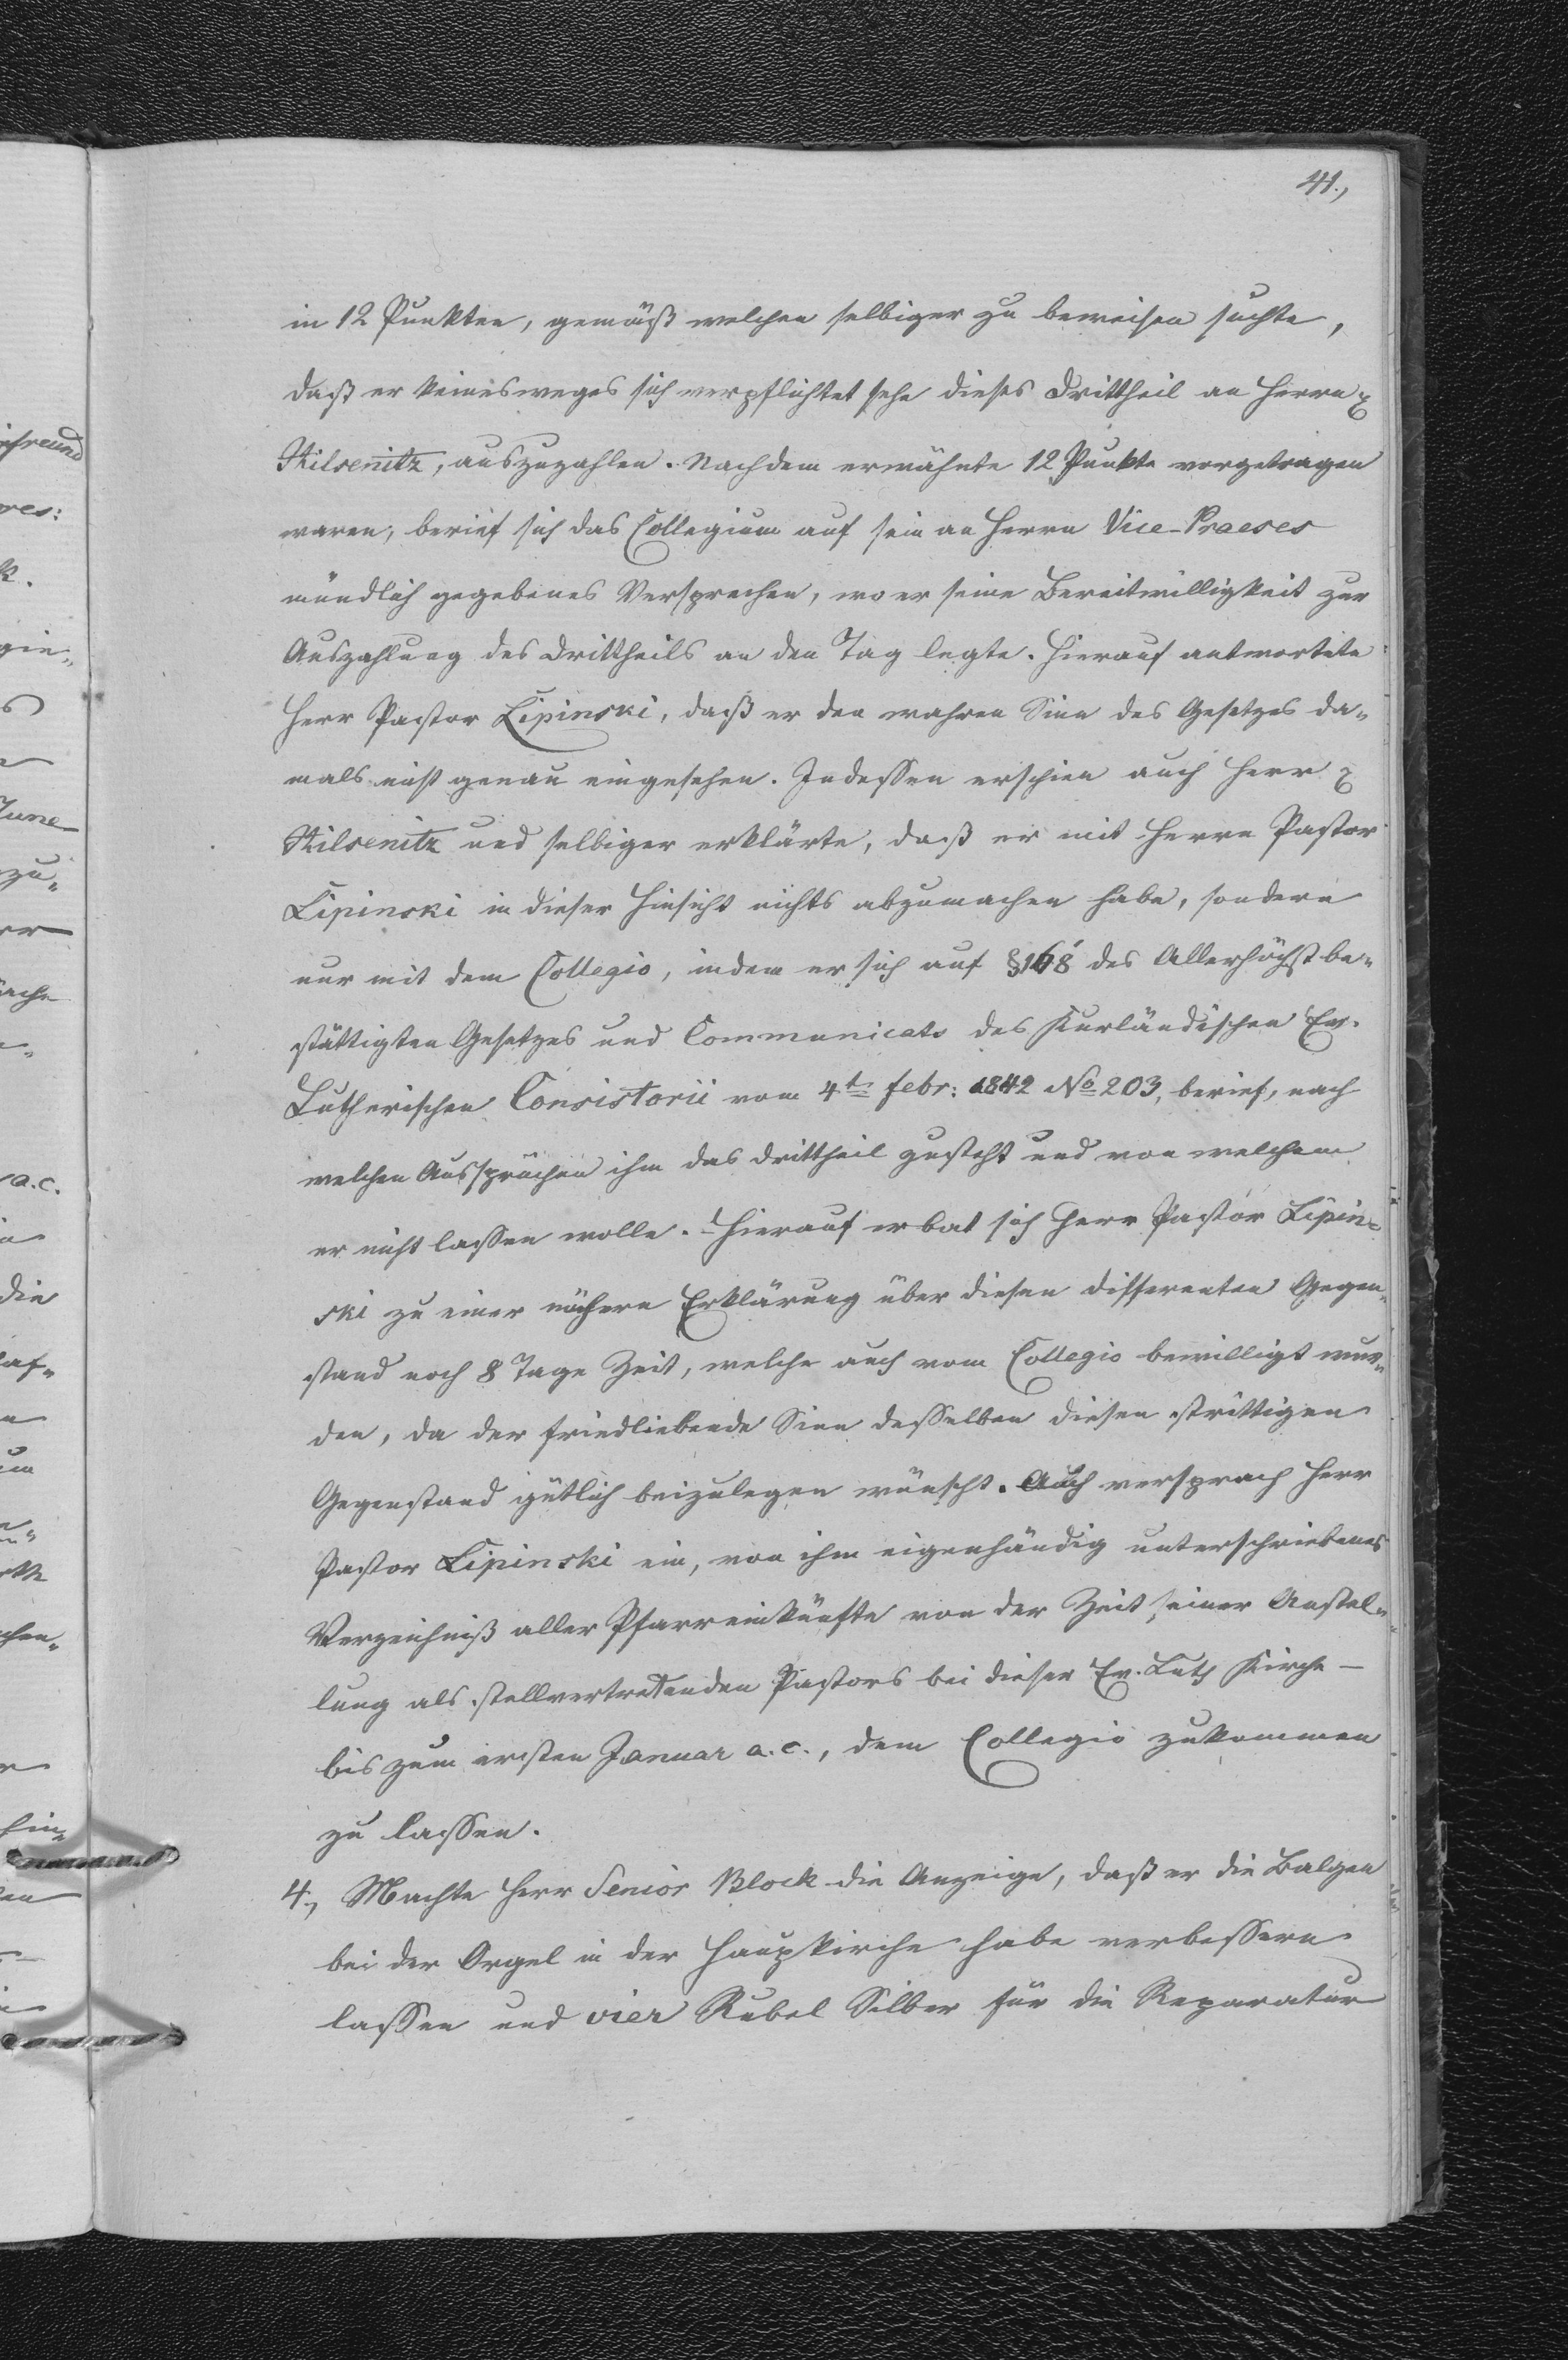 41.,
in 12 Punkten, gemäß welchen selbiger zu beweisen suchte,
daß er keinesweges sich verpflichtet sehe dieses Drittheil an Herrn
Kilsenitz, auszuzahlen. Nachdem erwähnte 12 Punkte vorgetragen
waren, berief sich das Collegium auf sein an Herrn Vice-Praeses
mündlich gegebenes Versprechen, wo er seine Bereitwilligkeit zur
Auszahlung des Drittheils an den Tag legte. Hierauf antwortete
Herr Pastor Lipinski, daß er den wahren Sinn des Gesetzes da-
mals nicht genau eingesehen. Indessen erschien auch Herr
Kilsenitz und selbiger erklärte, daß er mit Herrn Pastor
Lipinski in dieser Hinsicht nichts abzumachen habe, sondern
nur mit dem Collegio, indem er sich auf § 168 des Allerhöchst be-
stättigten Gesetzes und Communicats des Kurländischen Ev.
Lutherischen Consistorii vom 4t Febr: 1842 No 203, berief, nach
welchen Aussprüchen ihm das Drittheil zusteht und von welchem
er nicht lassen wolle. – Hierauf erbat sich Herr Pastor Lipin-
ski zu einer nähern Erklärung über diesen differenten Gegen-
stand noch 8 Tage Zeit, welche auch vom Collegio bewilligt wur-
den, da der friedliebende Sinn desselben diesen strittigen
Gegenstand gütlich beizulegen wünscht. Auch versprach Herr
Pastor Lipinski ein, von ihm eigenhändig unterschriebenes
Verzeichniß aller Pfarreinkünfte von der Zeit seiner Anstel-
lung als stellvertretenden Pastors bei dieser Ev. Luth Kirche –
bis zum ersten Januar a. c., dem Collegio zukommen
zu lassen.
4., Machte Herr Senior Block die Anzeige, daß er die Balgen
bei der Orgel in der Haupkirche habe verbessern
lassen und vier Rubel Silber für die Reparatur